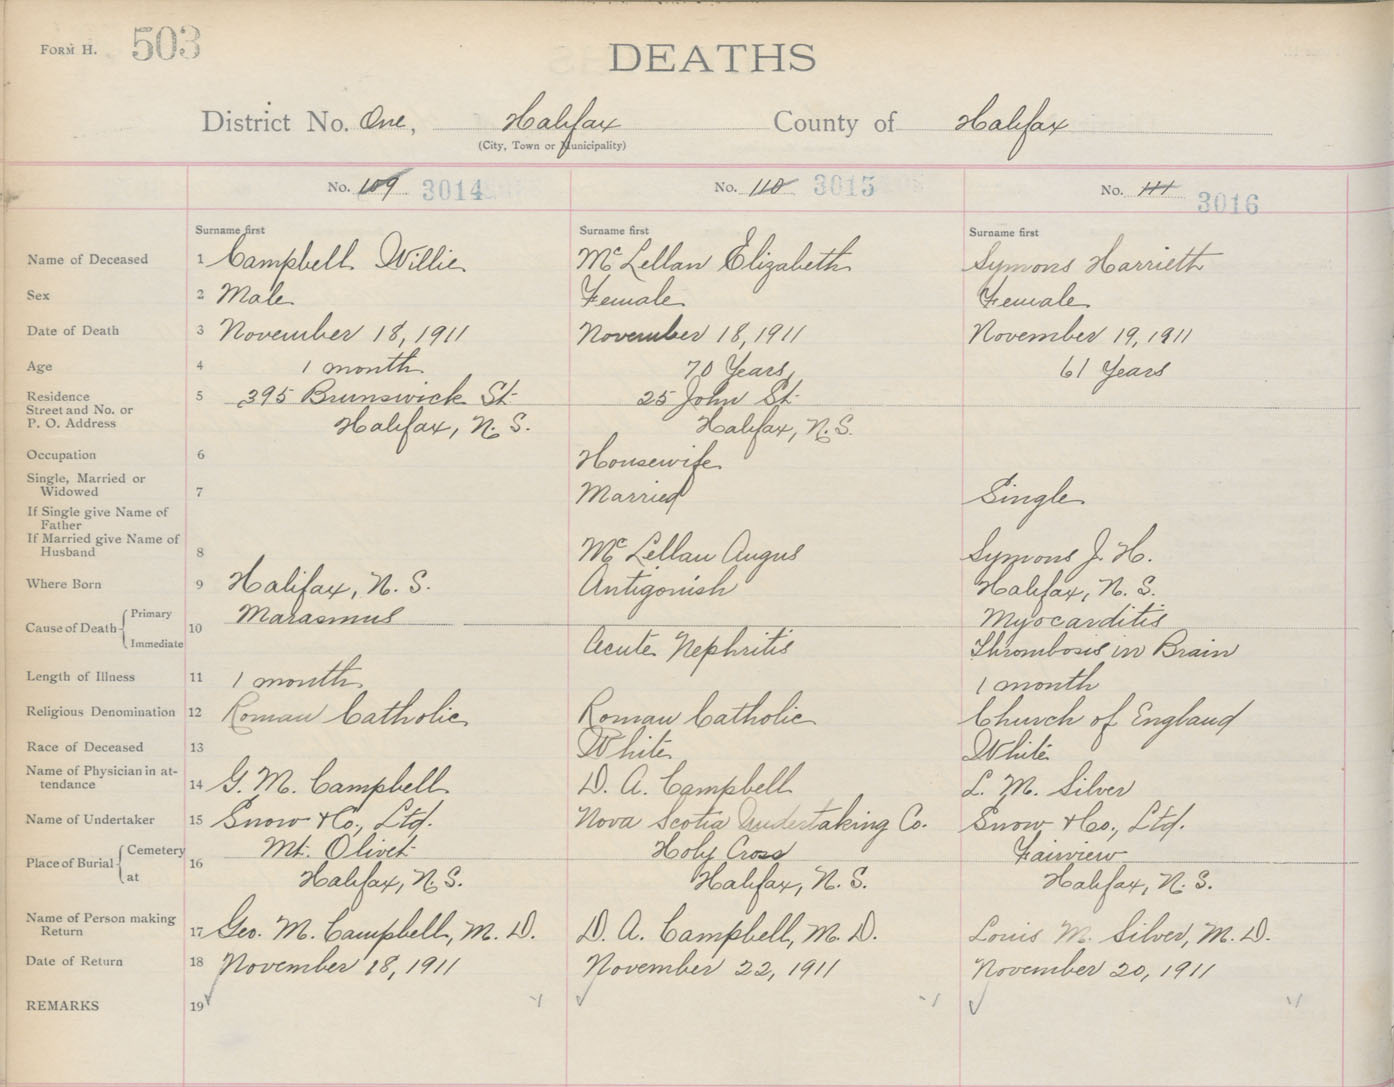 FORM H. 503
DEATHS
District No. One, Halifax County of Halifax
(City, Town or Municipality)
No. 109 3014 No. 110 3015 No. 111 3016
Surname first Surname first Surname first
Name of Deceased 1 Campbell Willie McLellan Elizabeth Symons Harrieth
Sex 2 Male Female Female
Date of Death 3 November 18, 1911 November 18, 1911 November 19, 1911
Age 4 1 month 70 Years 61 Years
Residence 5 395 Brunswick St. 25 John St.
Street and No. or
P. O. Address Halifax, N. S. Halifax, N. S.
Occupation 6 Housewife
Single, Married or
Widowed 7 Married Single
If Single give Name of
Father
If Married give Name of
Husband 8 McLellan Angus Symons J. H.
Where Born 9 Halifax, N. S. Antigonish Halifax, N. S.
Cause of Death Primary 10 Marasmus Myocarditis
Immediate Acute Nephritis Thrombosis in Brain
Length of Illness 11 1 month 1 month
Religious Denomination 12 Roman Catholic Roman Catholic Church of England
Race of Deceased 13 White White
Name of Physician in at-
tendance 14 G. M. Campbell D. A. Campbell L. M. Silver
Name of Undertaker 15 Snow & Co., Ltd. Nova Scotia Undertaking Co. Snow & Co., Ltd.
Place of Burial Cemetery 16 Mt. Olivet Holy Cross Fairview
at Halifax, N. S. Halifax, N. S. Halifax, N. S.
Name of Person making
Return 17 Geo. M. Campbell, M. D. D. A. Campbell, M. D. Louis M. Silver, M. D.
Date of Return 18 November 18, 1911 November 22, 1911 November 20, 1911
REMARKS 19